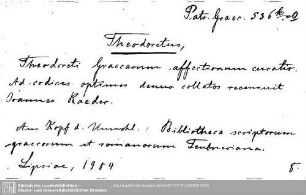 Patr. Graec. 536
Theodoretus,
Theodoreti Graecarum affectionum curatio.
Ad codices optimos denuo collatos recensuit
Ioannes Raeder.
Am Kopf d. Umschl.: Bibliotheca scriptorum
graecorum et romanorum Teubneriana.
Lipsiae, 1904
8.
Sächsische Landesbibliothek -
Staats- und Universitätsbibliothek Dresden